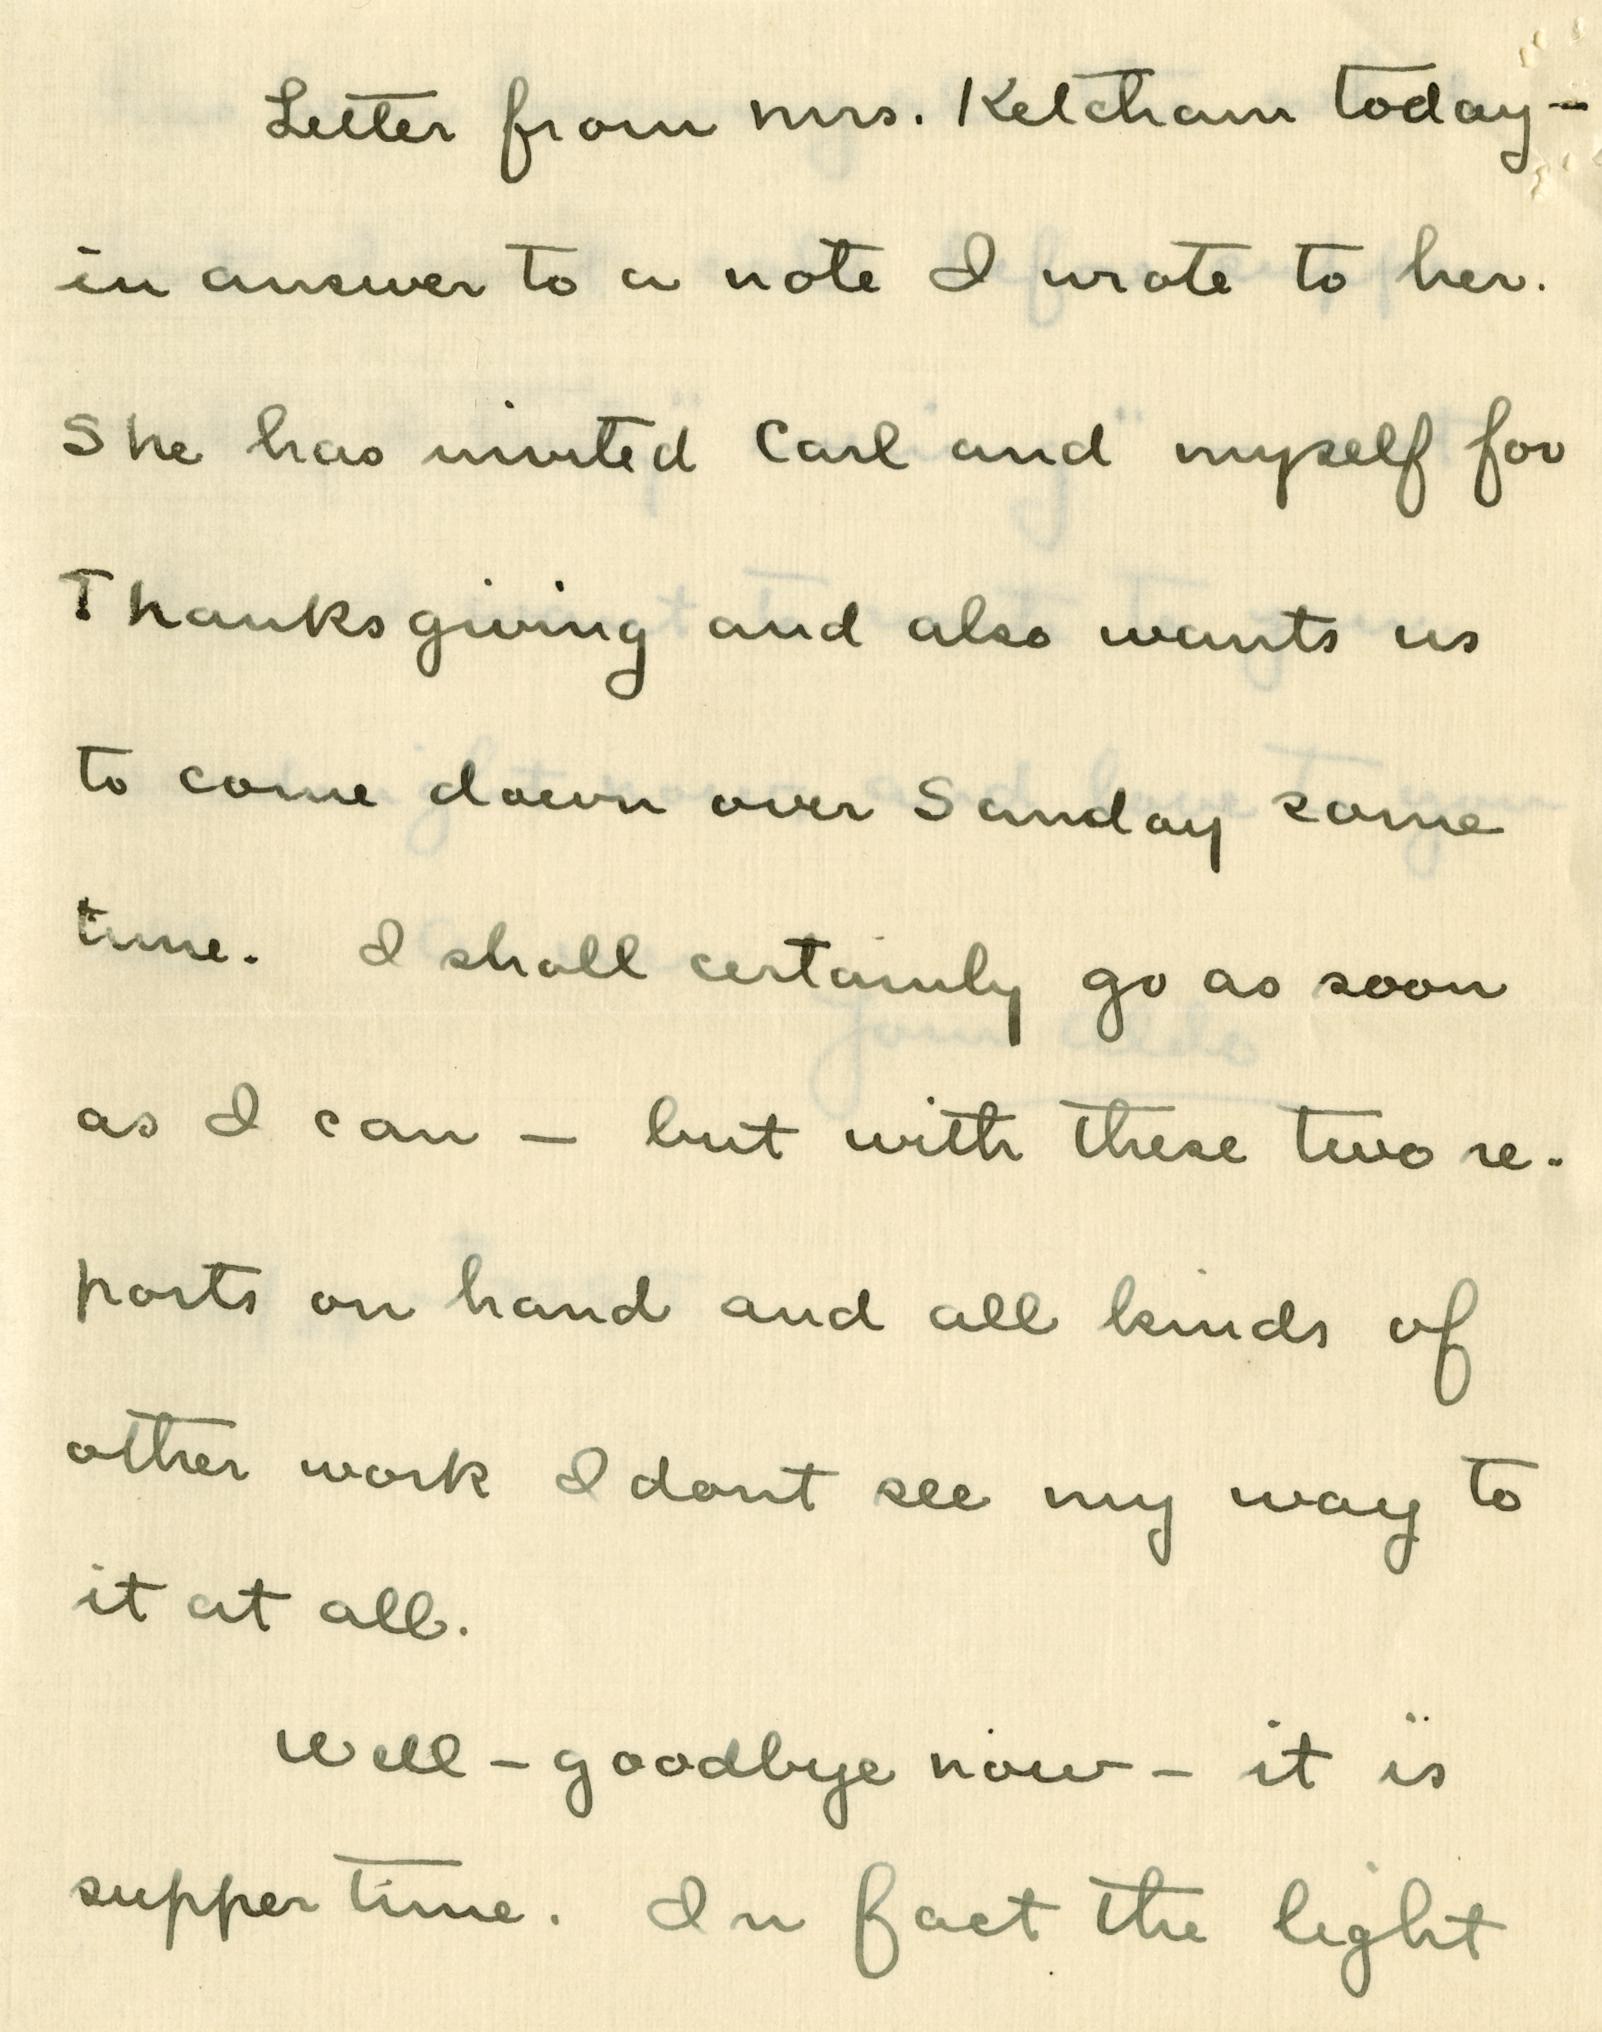 Letter from Mrs. Ketcham today —
in answer to a note I wrote to her.
She has invited Carl and myself for
Thanksgiving and also wants us
to come down over Sunday some
time. I shall certainly go as soon
as I can — but with these two re-
ports on hand and all kinds of
other work I dont see my way to
it at all.
Well — goodbye now — it is
supper time. In fact the light